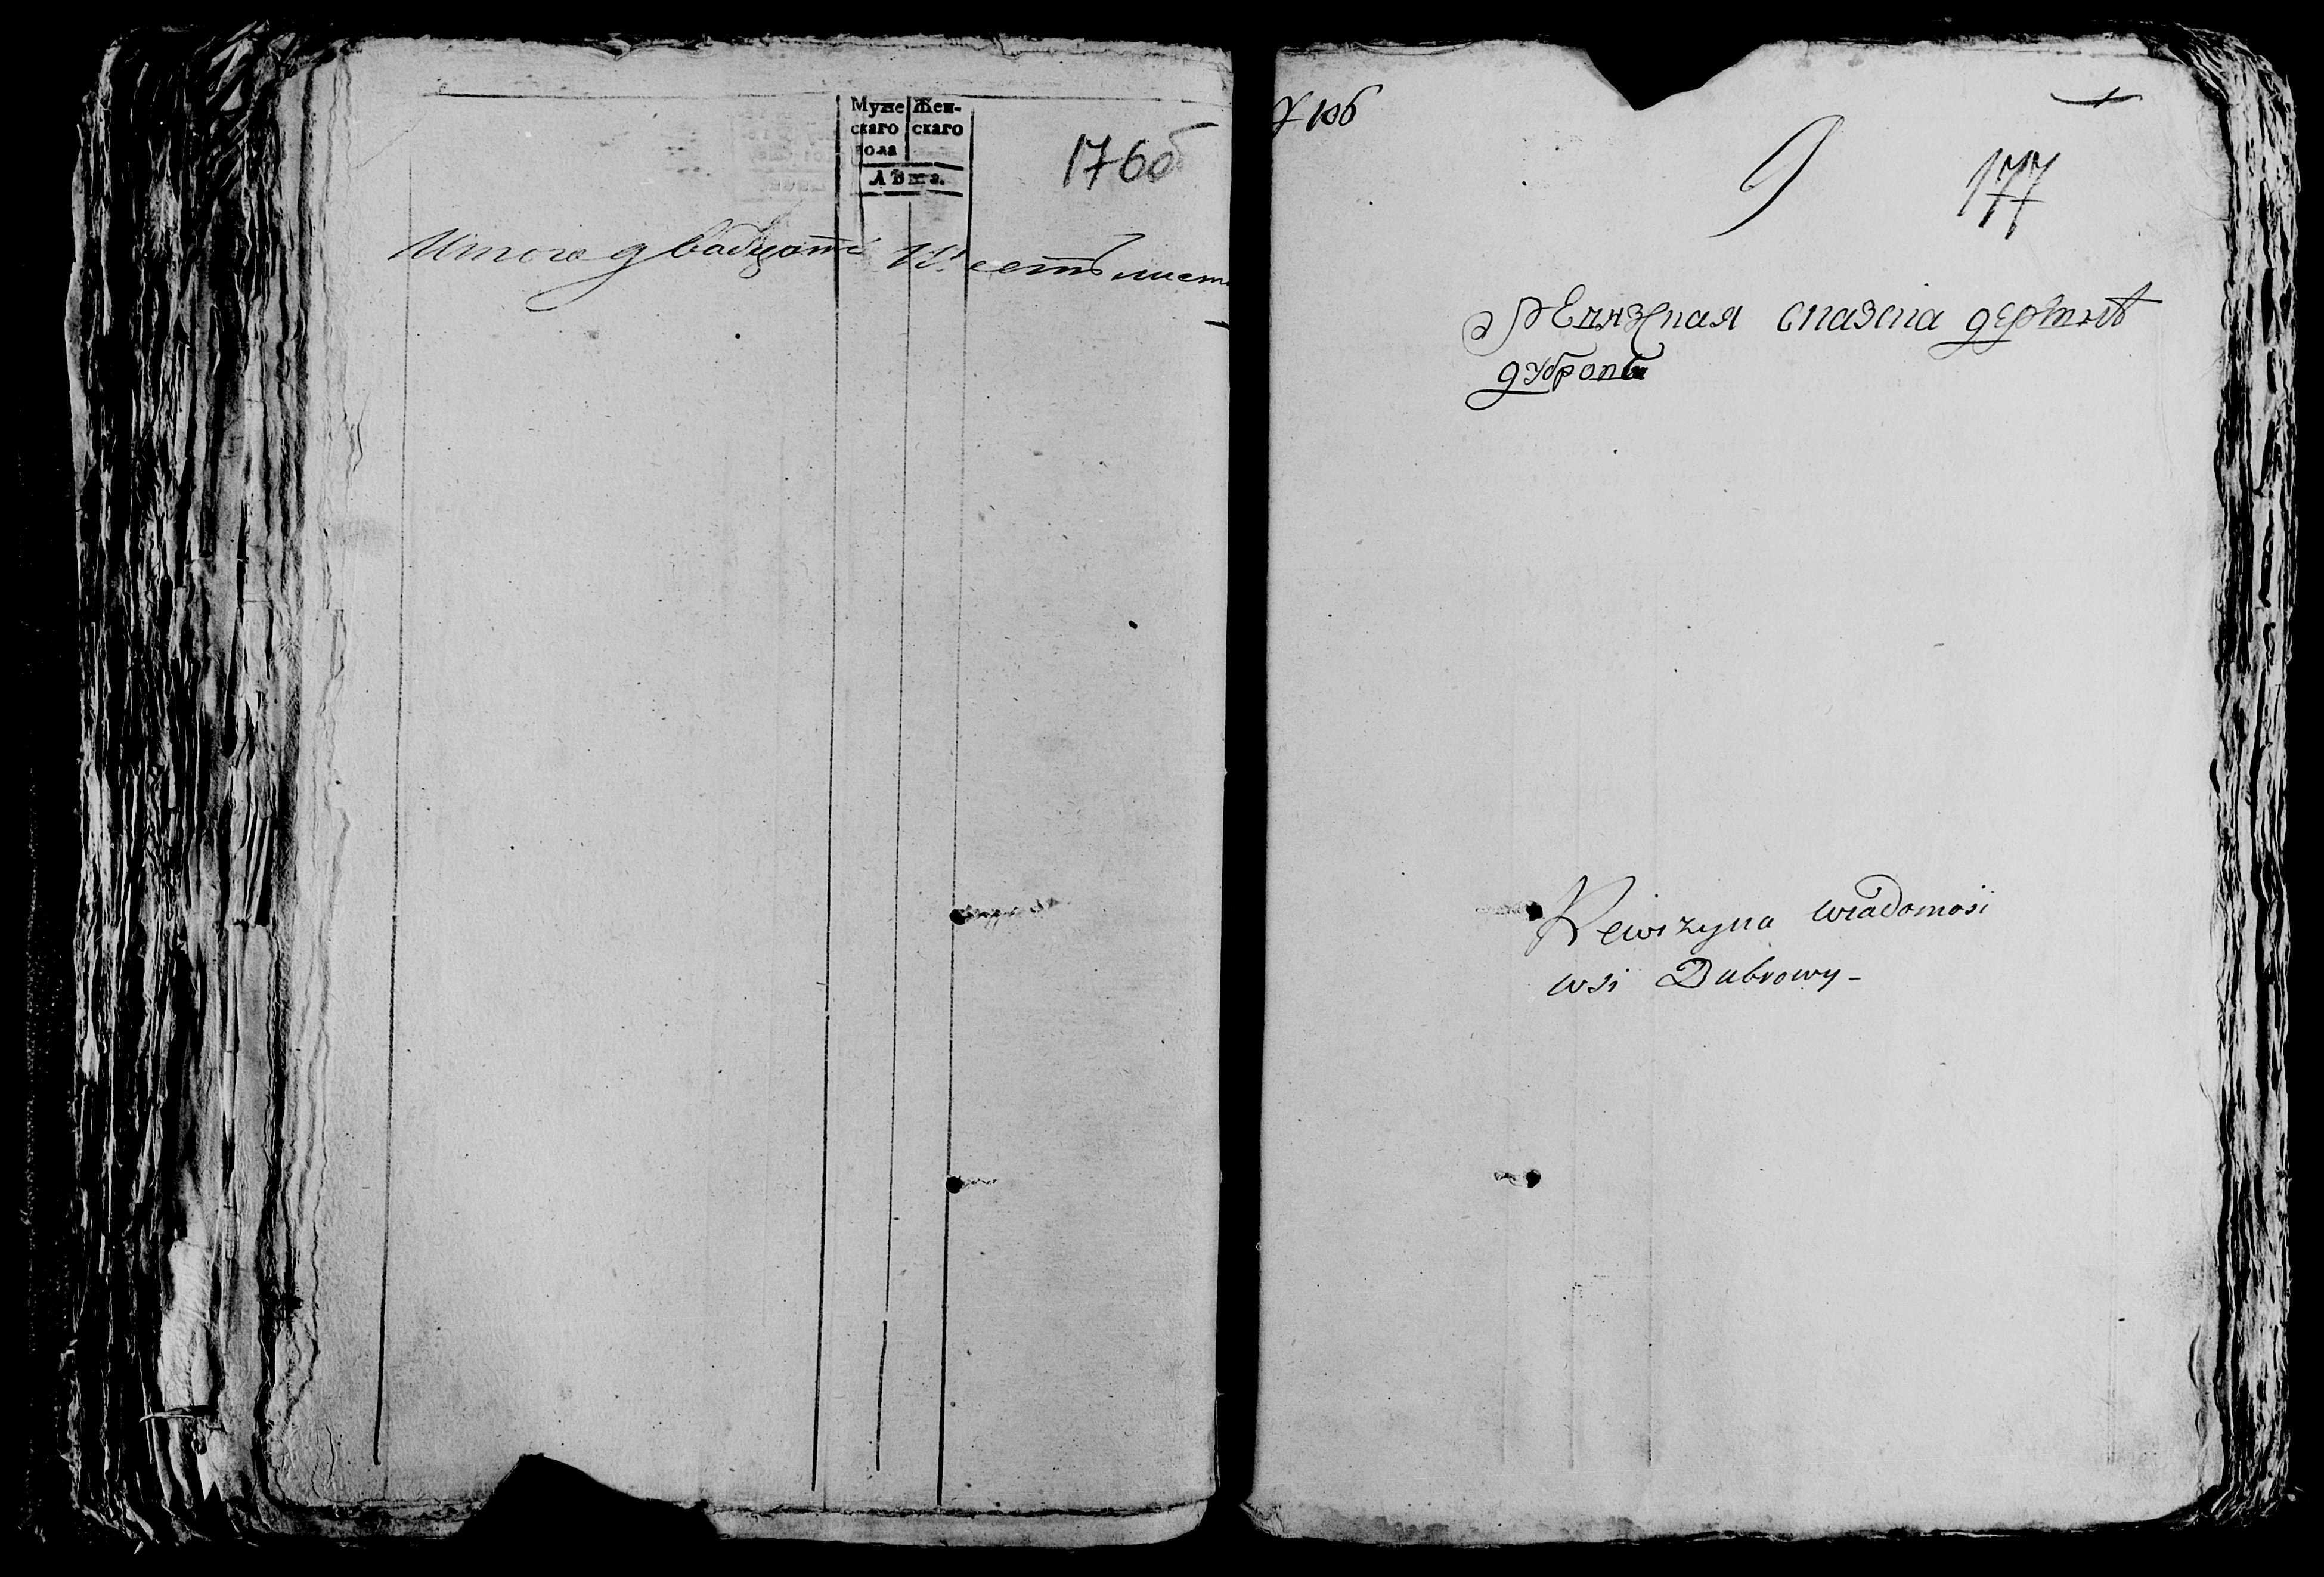 Мужескаго пола
Женскаго
Лѣта.
176об
Итого двадцать шесть лист
106
9
177
Ревизская сказка деревнѣ
дубровы
Rewizyina wiadomosi
wsi Dubrowy-